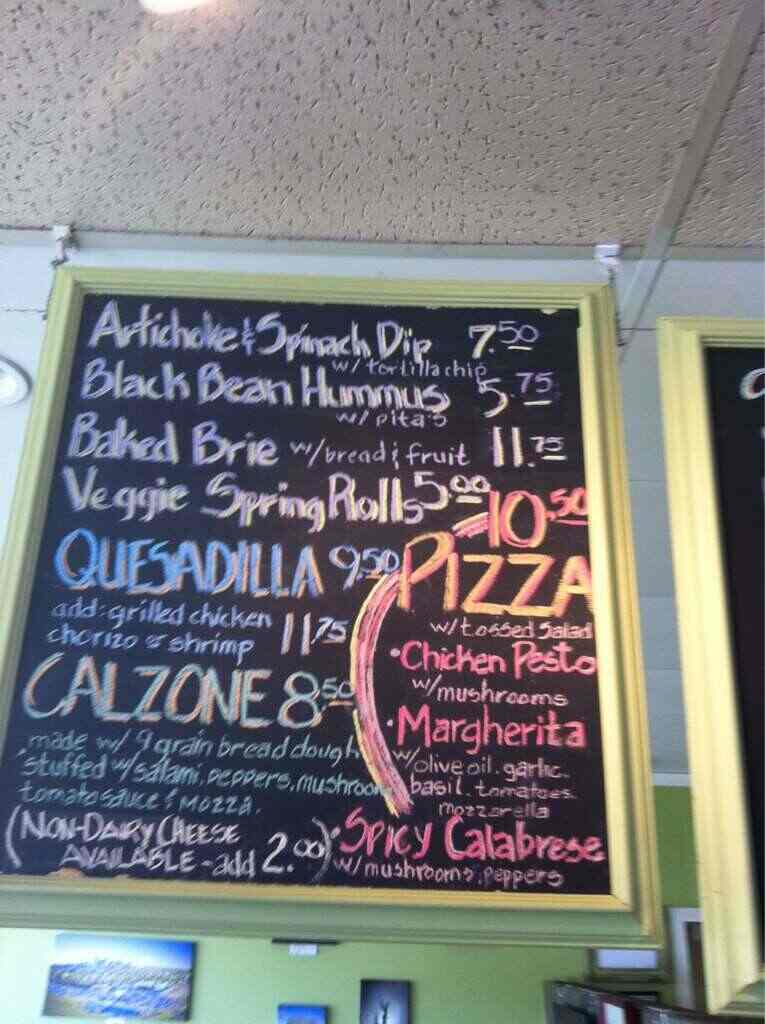 Artichoke & Spinach Dip 7.50
w/ tortilla chip
Black Bean Hummus 5.75
w/ pita's
Baked Brie w/bread & fruit 11.75
Veggie Spring Rolls 5.00
QUESADILLA 9.50
add: grilled chicken
chorizo or shrimp 11.75
CALZONE 8.50
.made w/ 9 grain bread dough
.stuffed w/salami, peppers, mushroom
tomato sauce & mozza.
(NON-DAIRY CHEESE
AVAILABLE - add 2.00)
10.50
PIZZA
w/tossed salad
•Chicken Pesto
w/mushrooms
•Margherita
w/olive oil. garlic.
basil. tomatoes.
mozzarella
•Spicy Calabrese
w/mushrooms, peppers